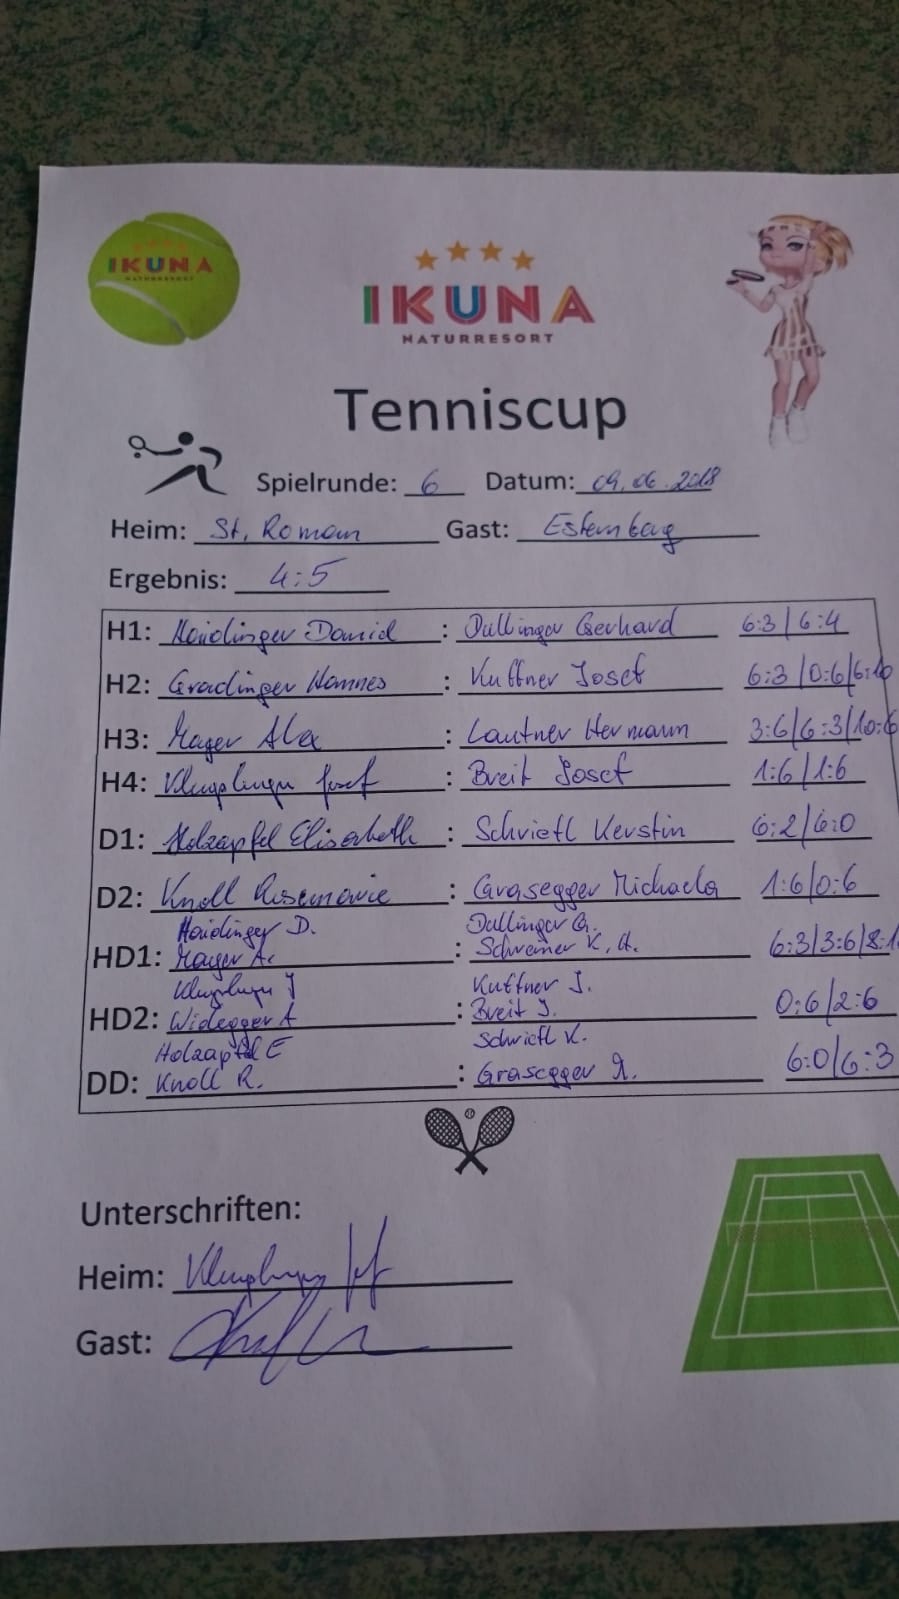 IKUNA
NATURRESORT
IKUNA
NATURRESORT
Tenniscup
Spielrunde: 6 Datum: 09.06.2018
Heim: St. Roman Gast: Esternberg
Ergebnis: 4:5
H1: Haidinger Daniel : Dullinger Gerhard 6:3/6:4
H2: Gradinger Hannes : Kuffner Josef 6:3/0:6/6:10
H3: Mayer Alex : Lautner Hermann 3:6/6:3/10:6
H4: Josef : Breit Josef 1:6/1:6
D1: Holzapfel Elisabeth : Schriefl Kerstin 6:2/6:0
D2: Knoll Rosemarie : Grasegger Michaela 1:6/0:6
Haidinger D. Dullinger G.
HD1: Mayer A. : Schreiner K. H. 6:3/3:6/8:1
J Kuffner J.
HD2: Widegger A : Breit J. 0:6/2:6
Holzapfel E Schriefl K.
DD: Knoll R. : Grasegger M. 6:0/6:3
Unterschriften:
Heim:
Gast: